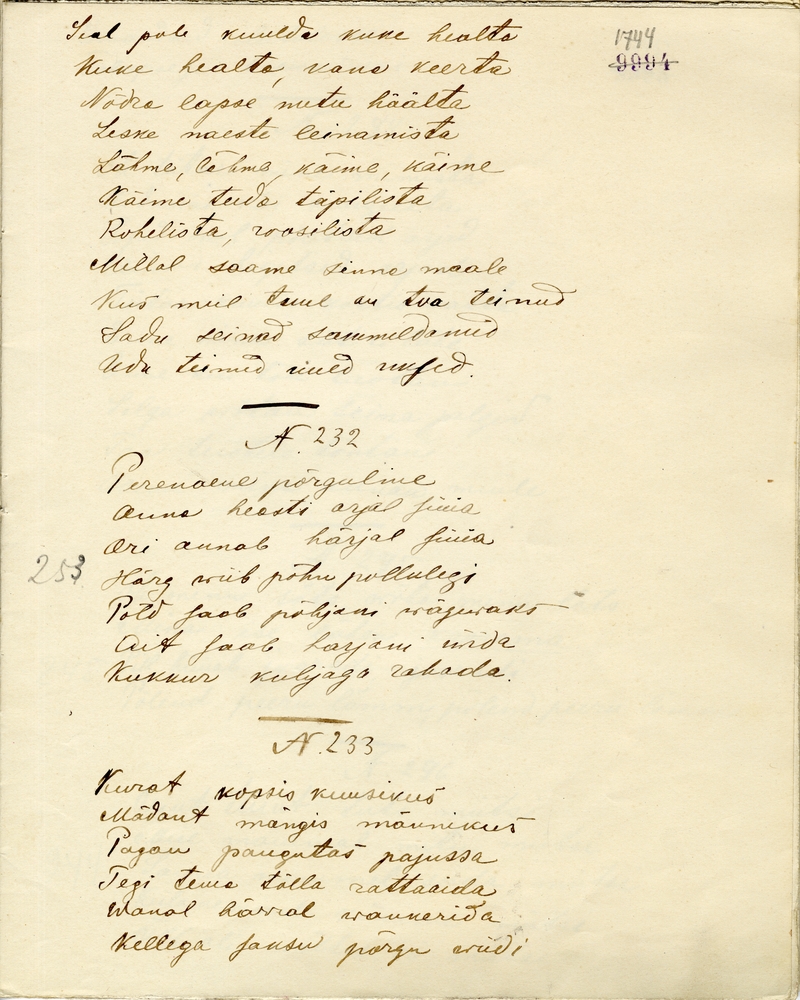 1744
9994
Seal pole kuulda kuke healta
Kuke healta, kana keerta
Nõdra lapse nutu häälta
Leske naeste leinamista
Lähme, lähme, käime, käime
Käime teeda täpilista
Rohelista, roosilista
Millal saame sinna maale
Kus meil tuul on toa teinud
Sadu seinad sammeldanud
Udu teinud uued uksed.
N. 232
Perenaene põrguline
Anna heasti orjal süüa
Ori annab härjal süüa
253. Härg wiib põhu pollulegi
Põld saab põhjani wäguwaks
Ait saab harjani wiida
Kukkur kuhjaga rahada.
N. 233
Kurat kopsis kuusikus
Mädant mängis männikus
Pagan paugutas pajussa
Tegi tema tõlla rattaida
Wanal härral wankerida
Kellega saksu põrgu wiidi